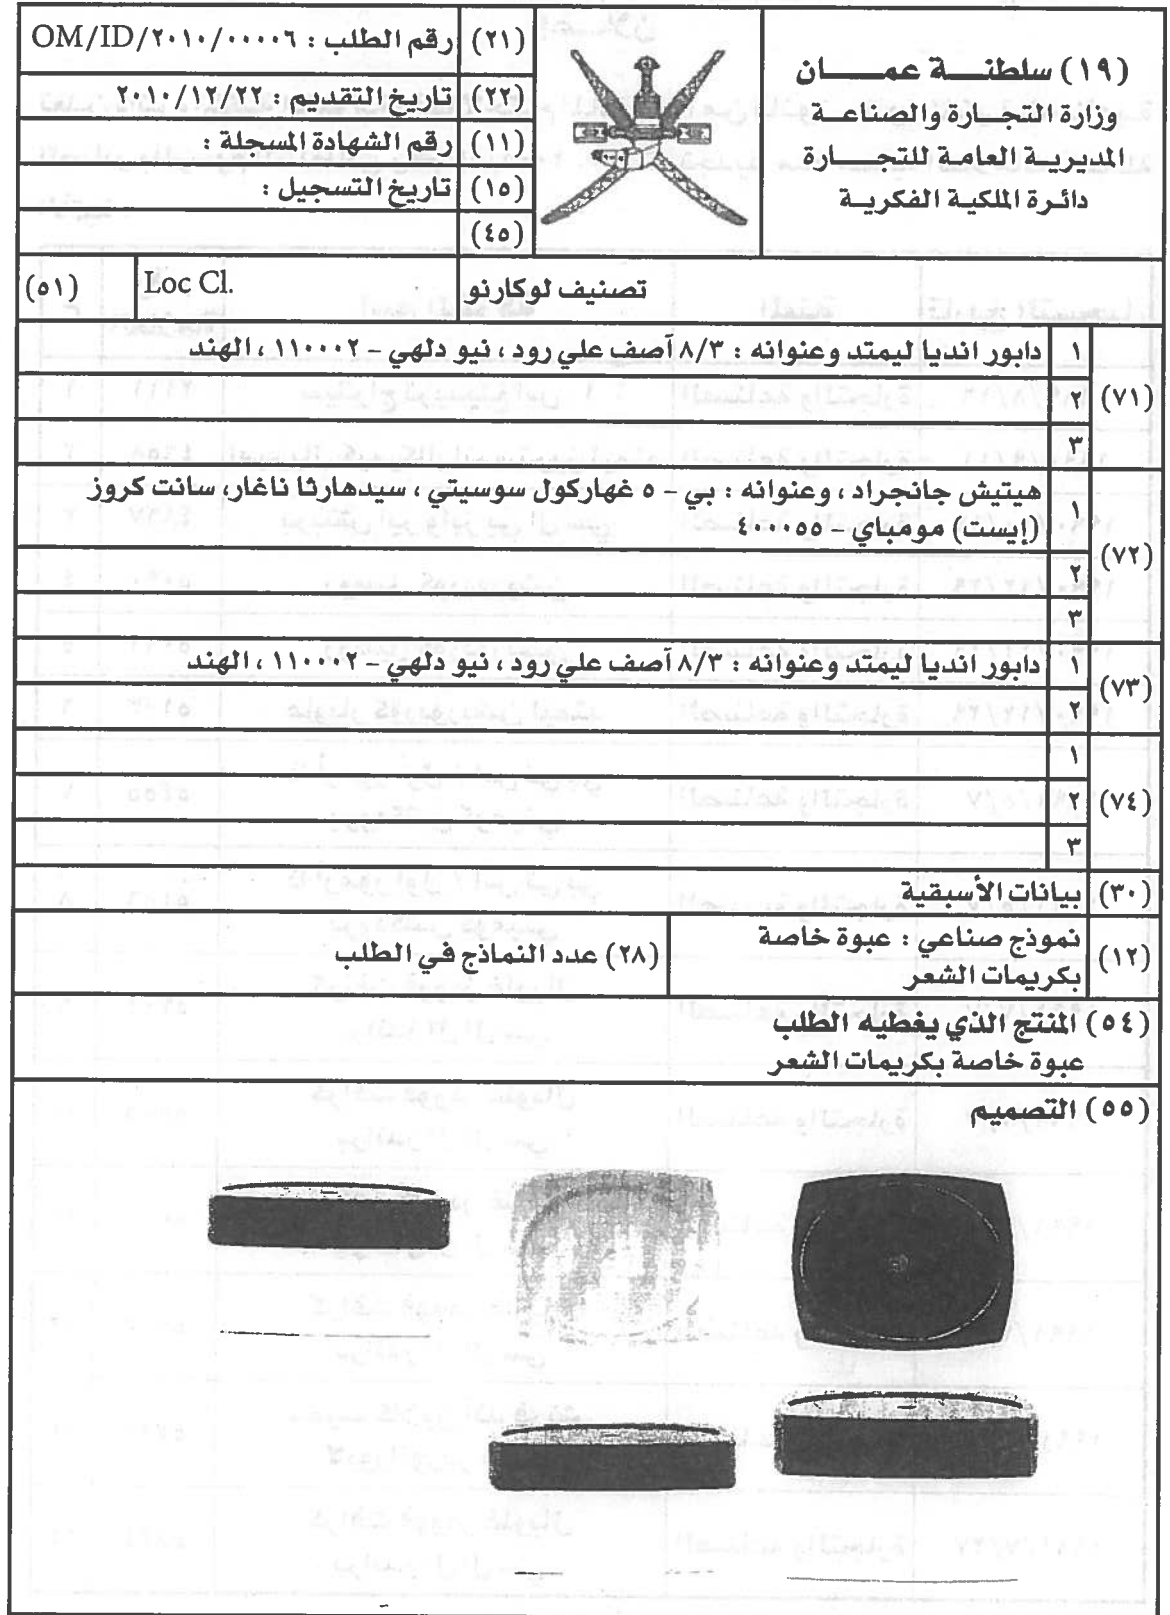 (١٩) سلطنـــة عمـــــان
وزارة التجـــارة والصناعـــة
المديرية العامة للتجــــارة
دائـرة الملكيـة الفكريـــة
(٢١) رقم الطلب : OM/ID/٢٠١٠/٠٠٠٠٦
(٢٢) تاريخ التقديم : ٢٠١٠/١٢/٢٢
(١١) رقم الشهادة المسجلة :
(١٥) تاريخ التسجيل :
(٤٥)
تصنيف لوكارنو Loc Cl. (٥١)
(٧١)
١ دابور انديا ليمتد وعنوانه : ٨/٣ آصف علي رود ، نيو دلهي - ١١٠٠٠٢ ، الهند
٢
٣
(٧٢)
١ هيتيش جانجراد ، وعنوانه : بي - ٥ غهاركول سوسيتي ، سيدهارثا ناغار، سانت كروز
(إيست) مومباي - ٤٠٠٠٥٥
٢
٣
(٧٣)
١ دابور انديا ليمتد وعنوانه : ٨/٣ آصف علي رود ، نيو دلهي - ١١٠٠٠٢ ، الهند
٢
(٧٤)
١
٢
٣
(٣٠) بيانات الأسبقية
(١٢) نموذج صناعي : عبوة خاصة
بكريمات الشعر
(٢٨) عدد النماذج في الطلب
(٥٤) المنتج الذي يغطيه الطلب
عبوة خاصة بكريمات الشعر
(٥٥) التصميم